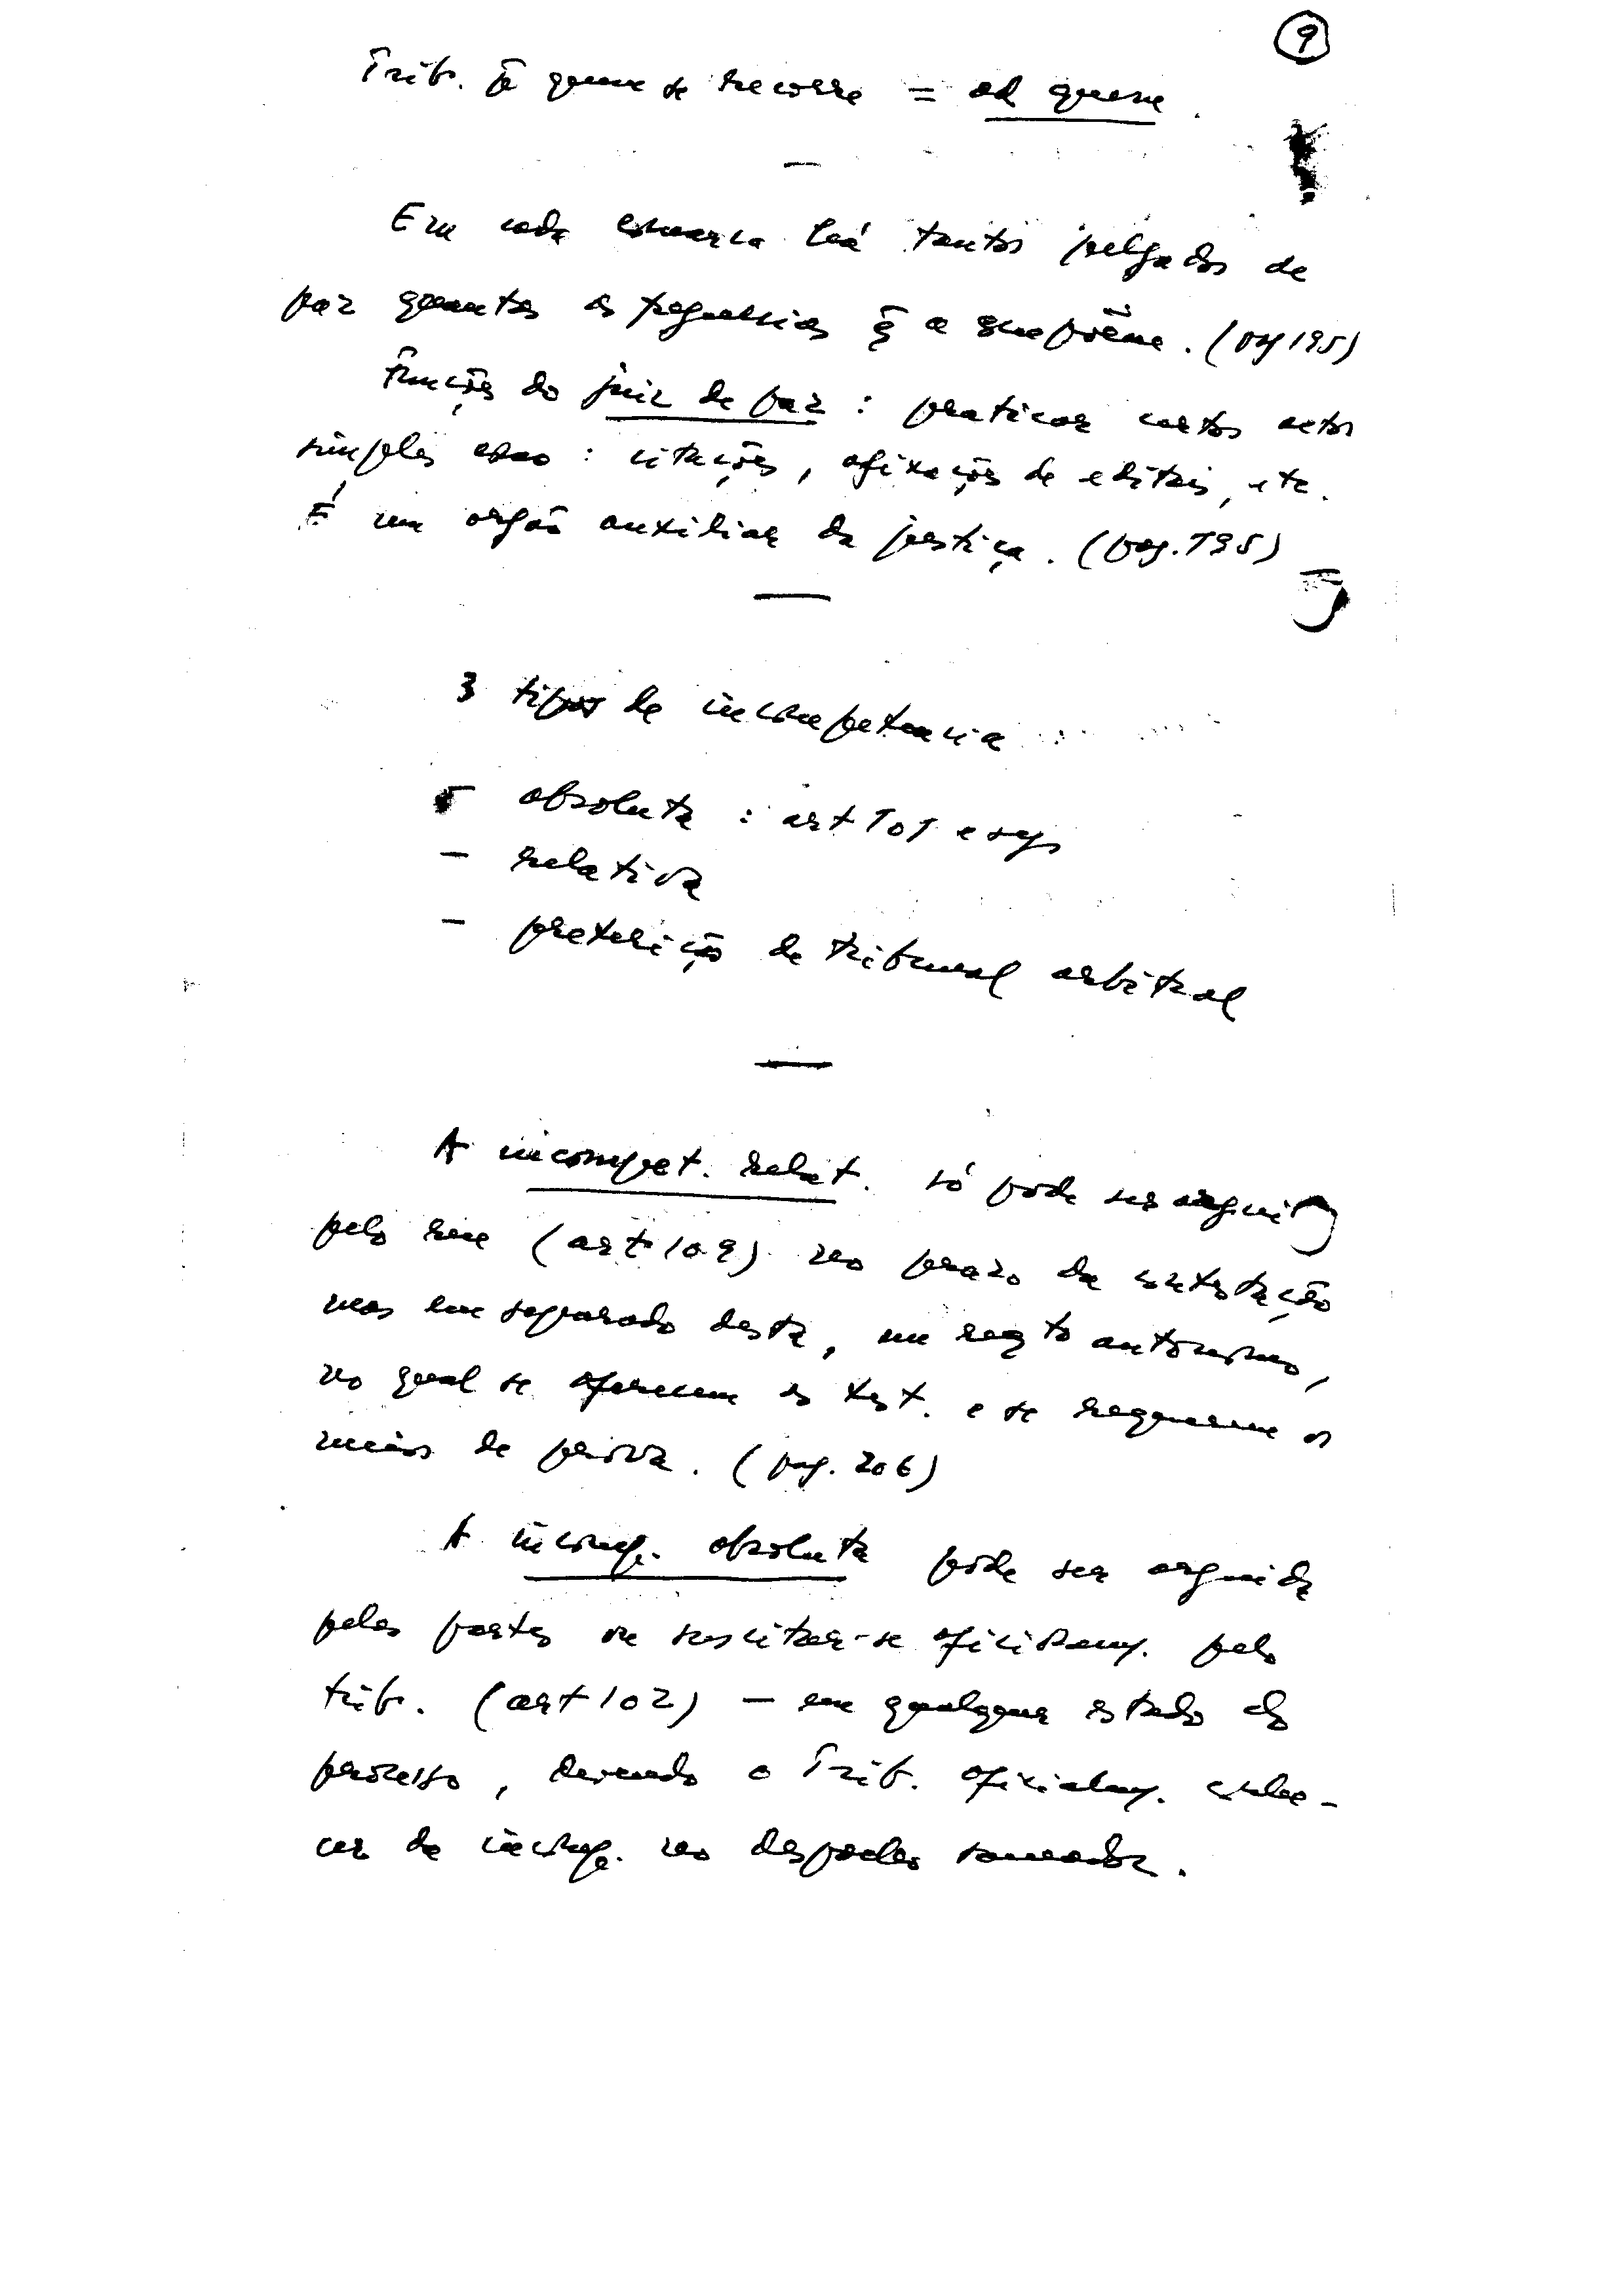 9
Trib. p̄ quem se recorre = ad quem.
Em cada comarca há tantos julgados de
paz quantas as freguesias q̄ a compõem. (pag 195)
Funções do juiz de paz : praticar certos actos
simples como : citações, afixações de editais, etc.
É um orgão auxiliar da justiça. (pag. 195)
3 tipos de incompetencia
- absoluta : art 101 e segs
- relativa
- preterição de tribunal arbitral
A incompet. relat. só pode ser argui
pelo reu (art 109) no prazo da contestação
mas em separado desta, em reqto autonomo,
no qual se oferecem as test. e se requerem os
meios de prova. (pag. 206)
A incomp. absoluta pode ser arguida
pelas partes ou suscitar-se oficiosamente pelo
trib. (art 102) - em qualquer estado do
processo, devendo o Trib. conhe-
cer da incomp. no despacho saneador.